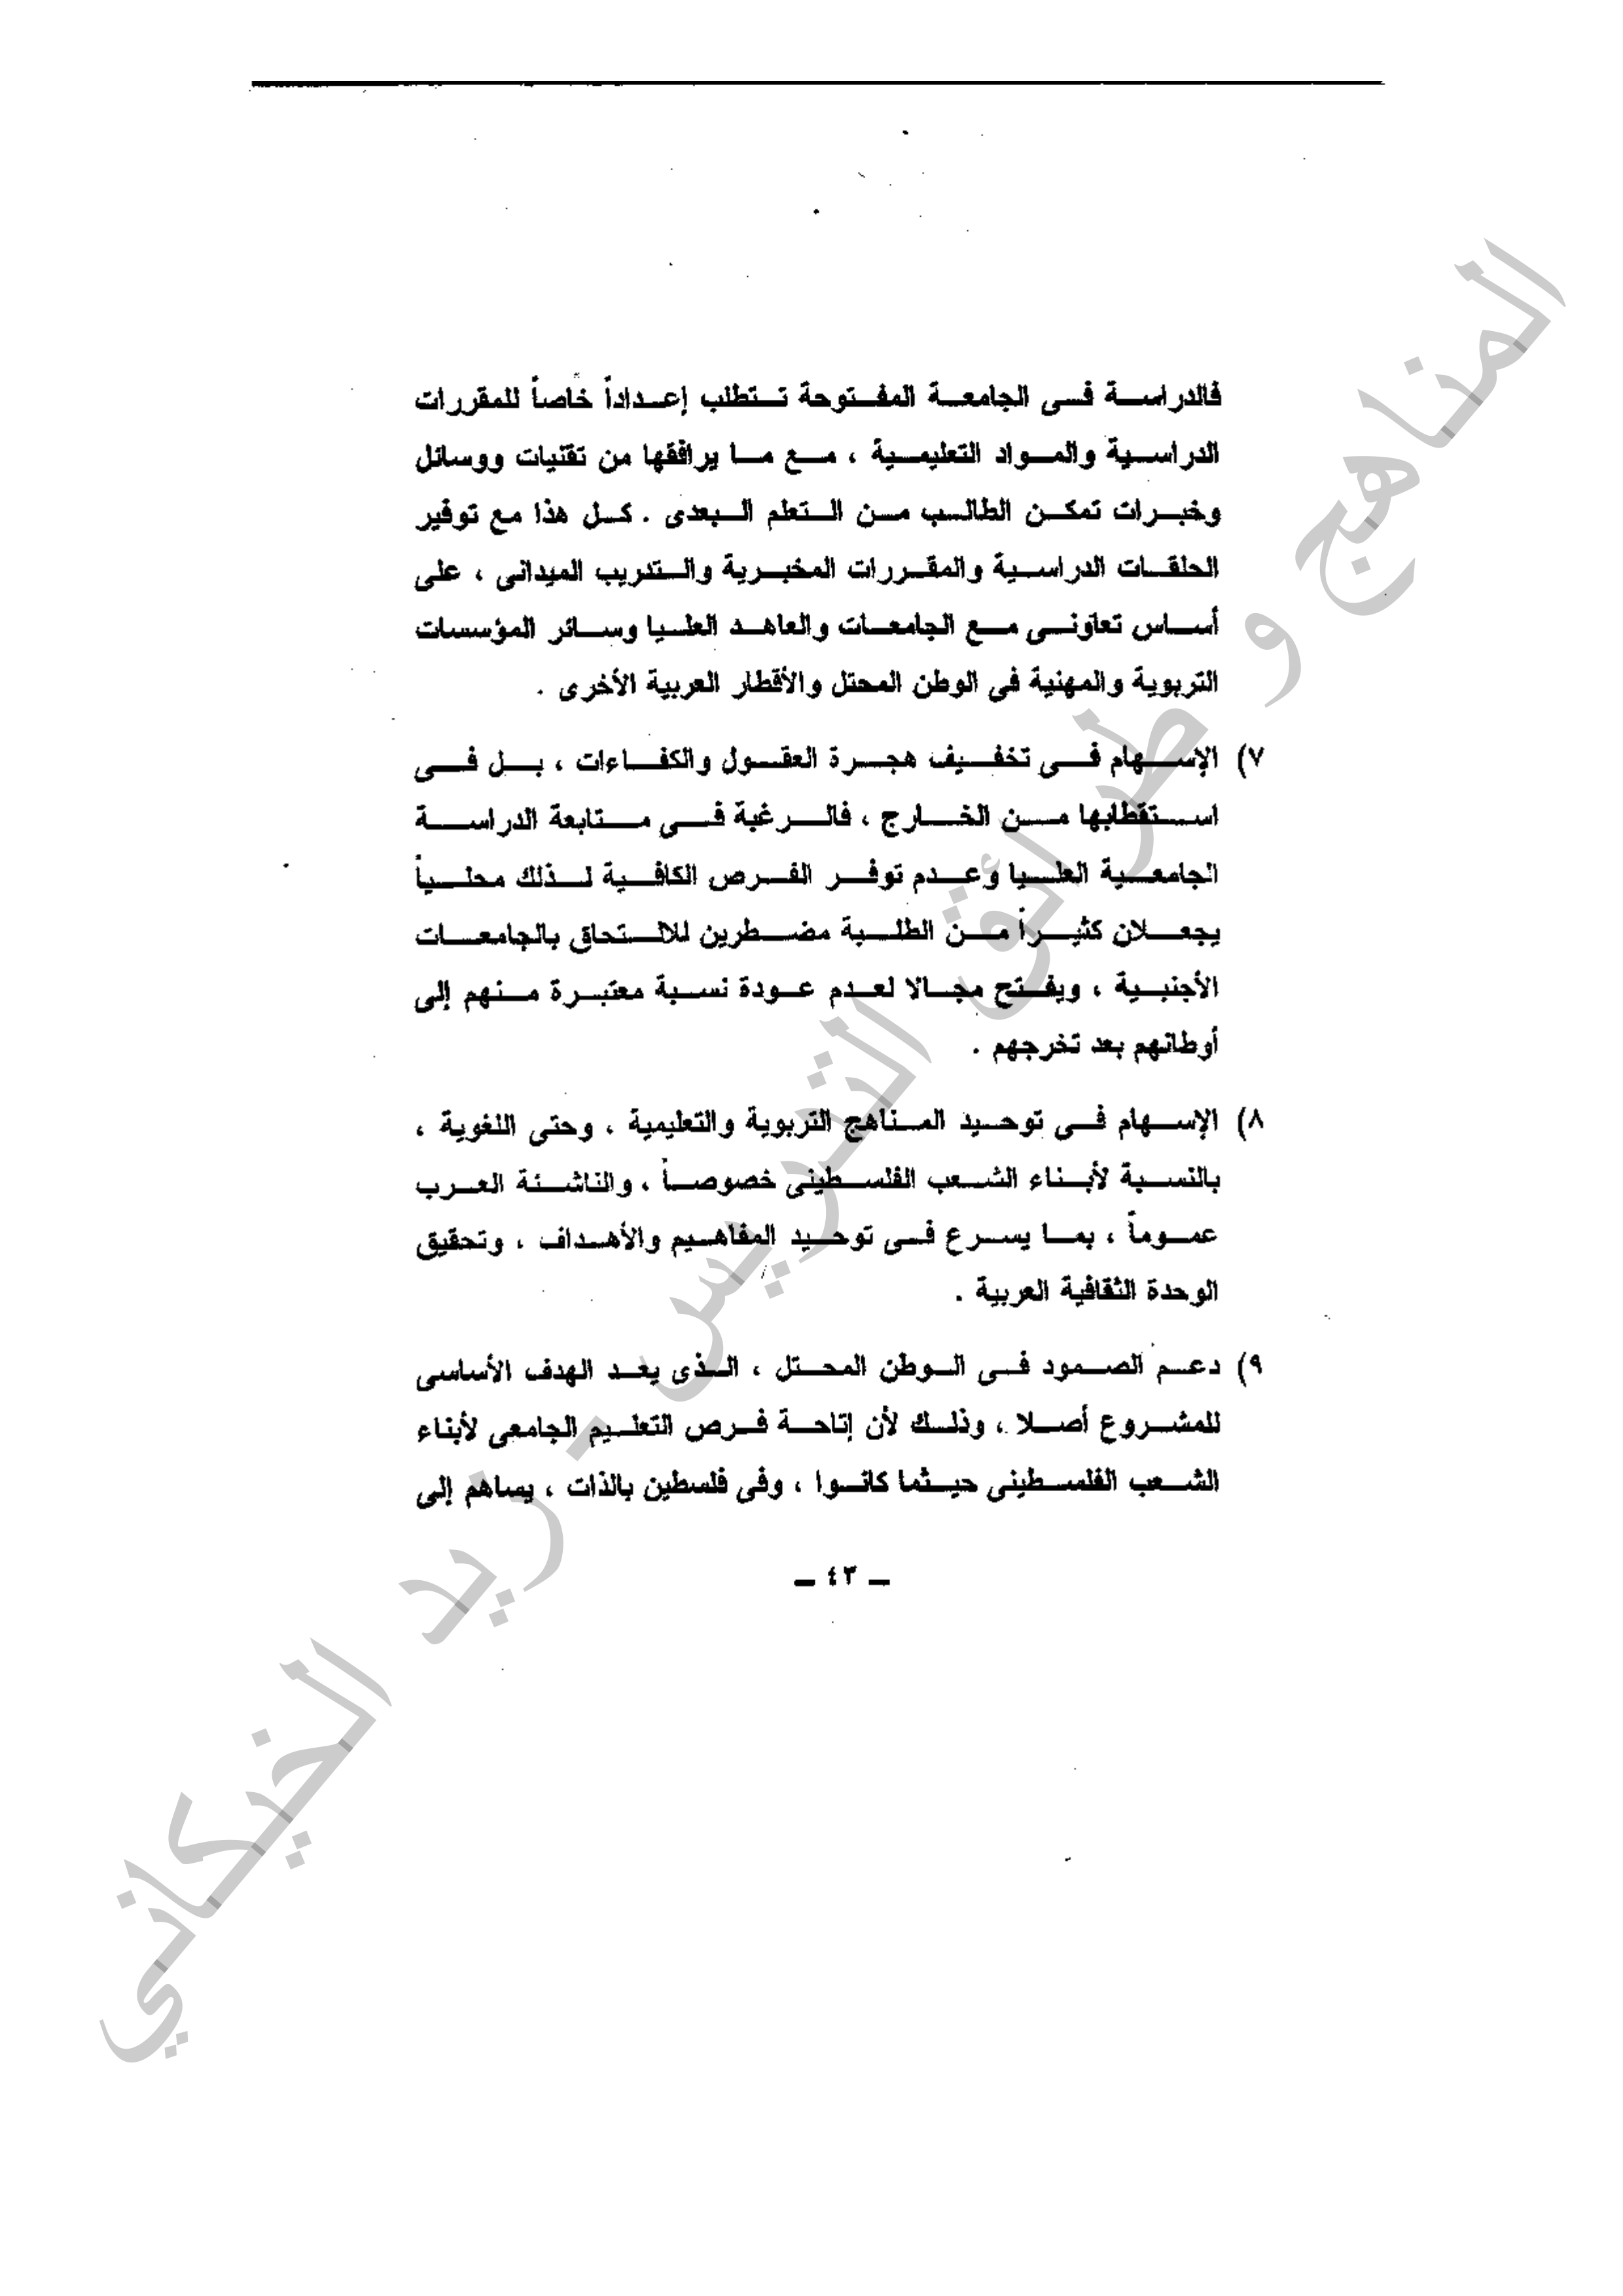 فالدراسة فى الجامعة المفتوحة تتطلب إعداداً خاصاً للمقررات
الدراسية والمواد التعليمية ، مع ما يرافقها من تقنيات ووسائل
وخبرات تمكن الطالب من التعلم البعدى . كل هذا مع توفير
الحلقات الدراسية والمقررات المخبرية والتدريب الميدانى ، على
أساس تعاونى مع الجامعات والعاهد العليا وسائر المؤسسات
التربوية والمهنية فى الوطن المحتل والأقطار العربية الأخرى .
٧) الإسهام فى تخفيف هجرة العقول والكفاءات ، بل فى
استقطابها من الخارج ، فالرغبة فى متابعة الدراسة
الجامعية العليا وعدم توفر الفرص الكافية لذلك محلياً
يجعلان كثيراً من الطلبة مضطرين للالتحاق بالجامعات
الأجنبية ، ويفتح مجالا لعدم عودة نسبة معتبرة منهم إلى
أوطانهم بعد تخرجهم .
٨) الإسهام فى توحيد المناهج التربوية والتعليمية ، وحتى اللغوية ،
بالنسبة لأبناء الشعب الفلسطينى خصوصاً ، والناشئة العرب
عموماً ، بما يسرع فى توحيد المفاهيم والأهداف ، وتحقيق
الوحدة الثقافية العربية .
٩) دعم الصمود فى الوطن المحتل ، الذى يعد الهدف الأساسى
للمشروع أصلا ، وذلك لأن إتاحة فرص التعليم الجامعى لأبناء
الشعب الفلسطينى حيثما كانوا ، وفى فلسطين بالذات ، يساهم إلى
ــ ٤٣ ــ
المناهج و طرائق التدريس - زيد الخيكاني